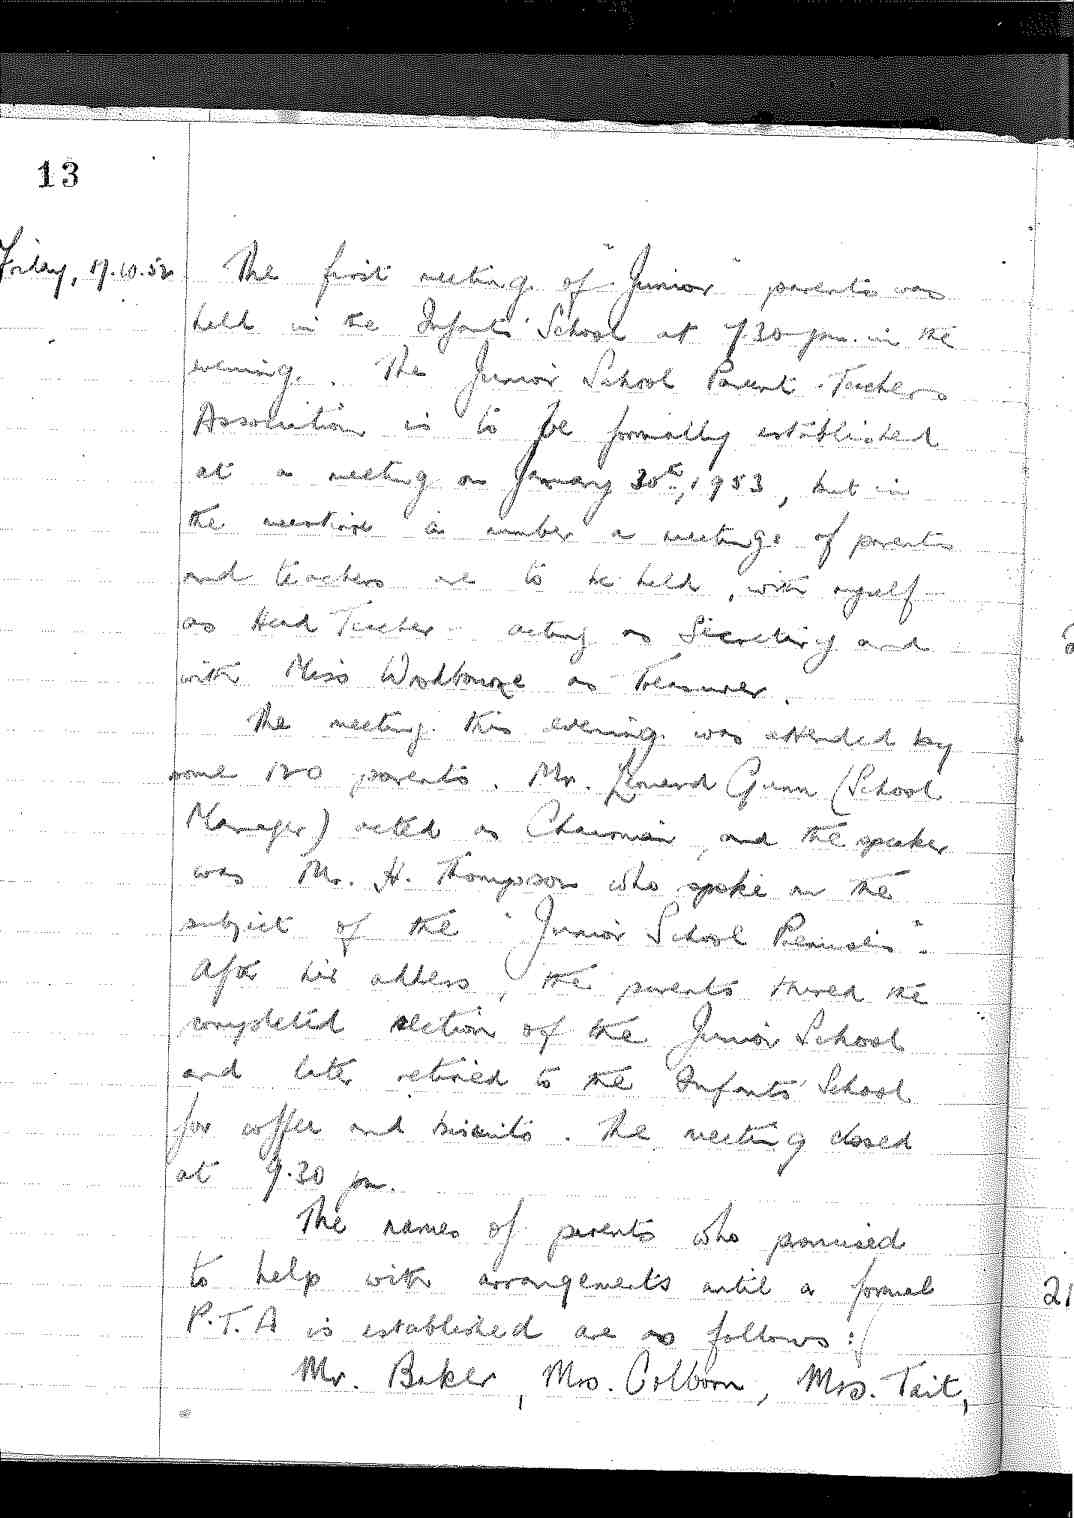 13
Friday, 17.10.52 The first meeting of "Junior" parents was
held in the Infants' School at 7.30 pm. in the
evening. The Junior School Parent-Teachers
Association is to be formally established
at a meeting on January 30th, 1953, but in
the meantime a number a meetings of parents
and teachers are to be held, with myself -
as Head Teacher - acting as Secretary and
with Miss as Treasurer.
The meeting this evening was attended by
some 120 parents. Mr. Gunn (School
Manager) acted as Chairman, and the speaker
was Mr. H. Thompson who spoke on the
subject of the "Junior School Premises".
After his address, the parents toured the
completed section of the Junior School
and later retired to the Infants' School
for coffee and biscuits. The meeting closed
at 9.30 pm.
The names of parents who promised
to help with arrangements until a formal
P.T.A is established are as follows:
Mr. Baker, Mrs. Colborn, Mrs. Tait,